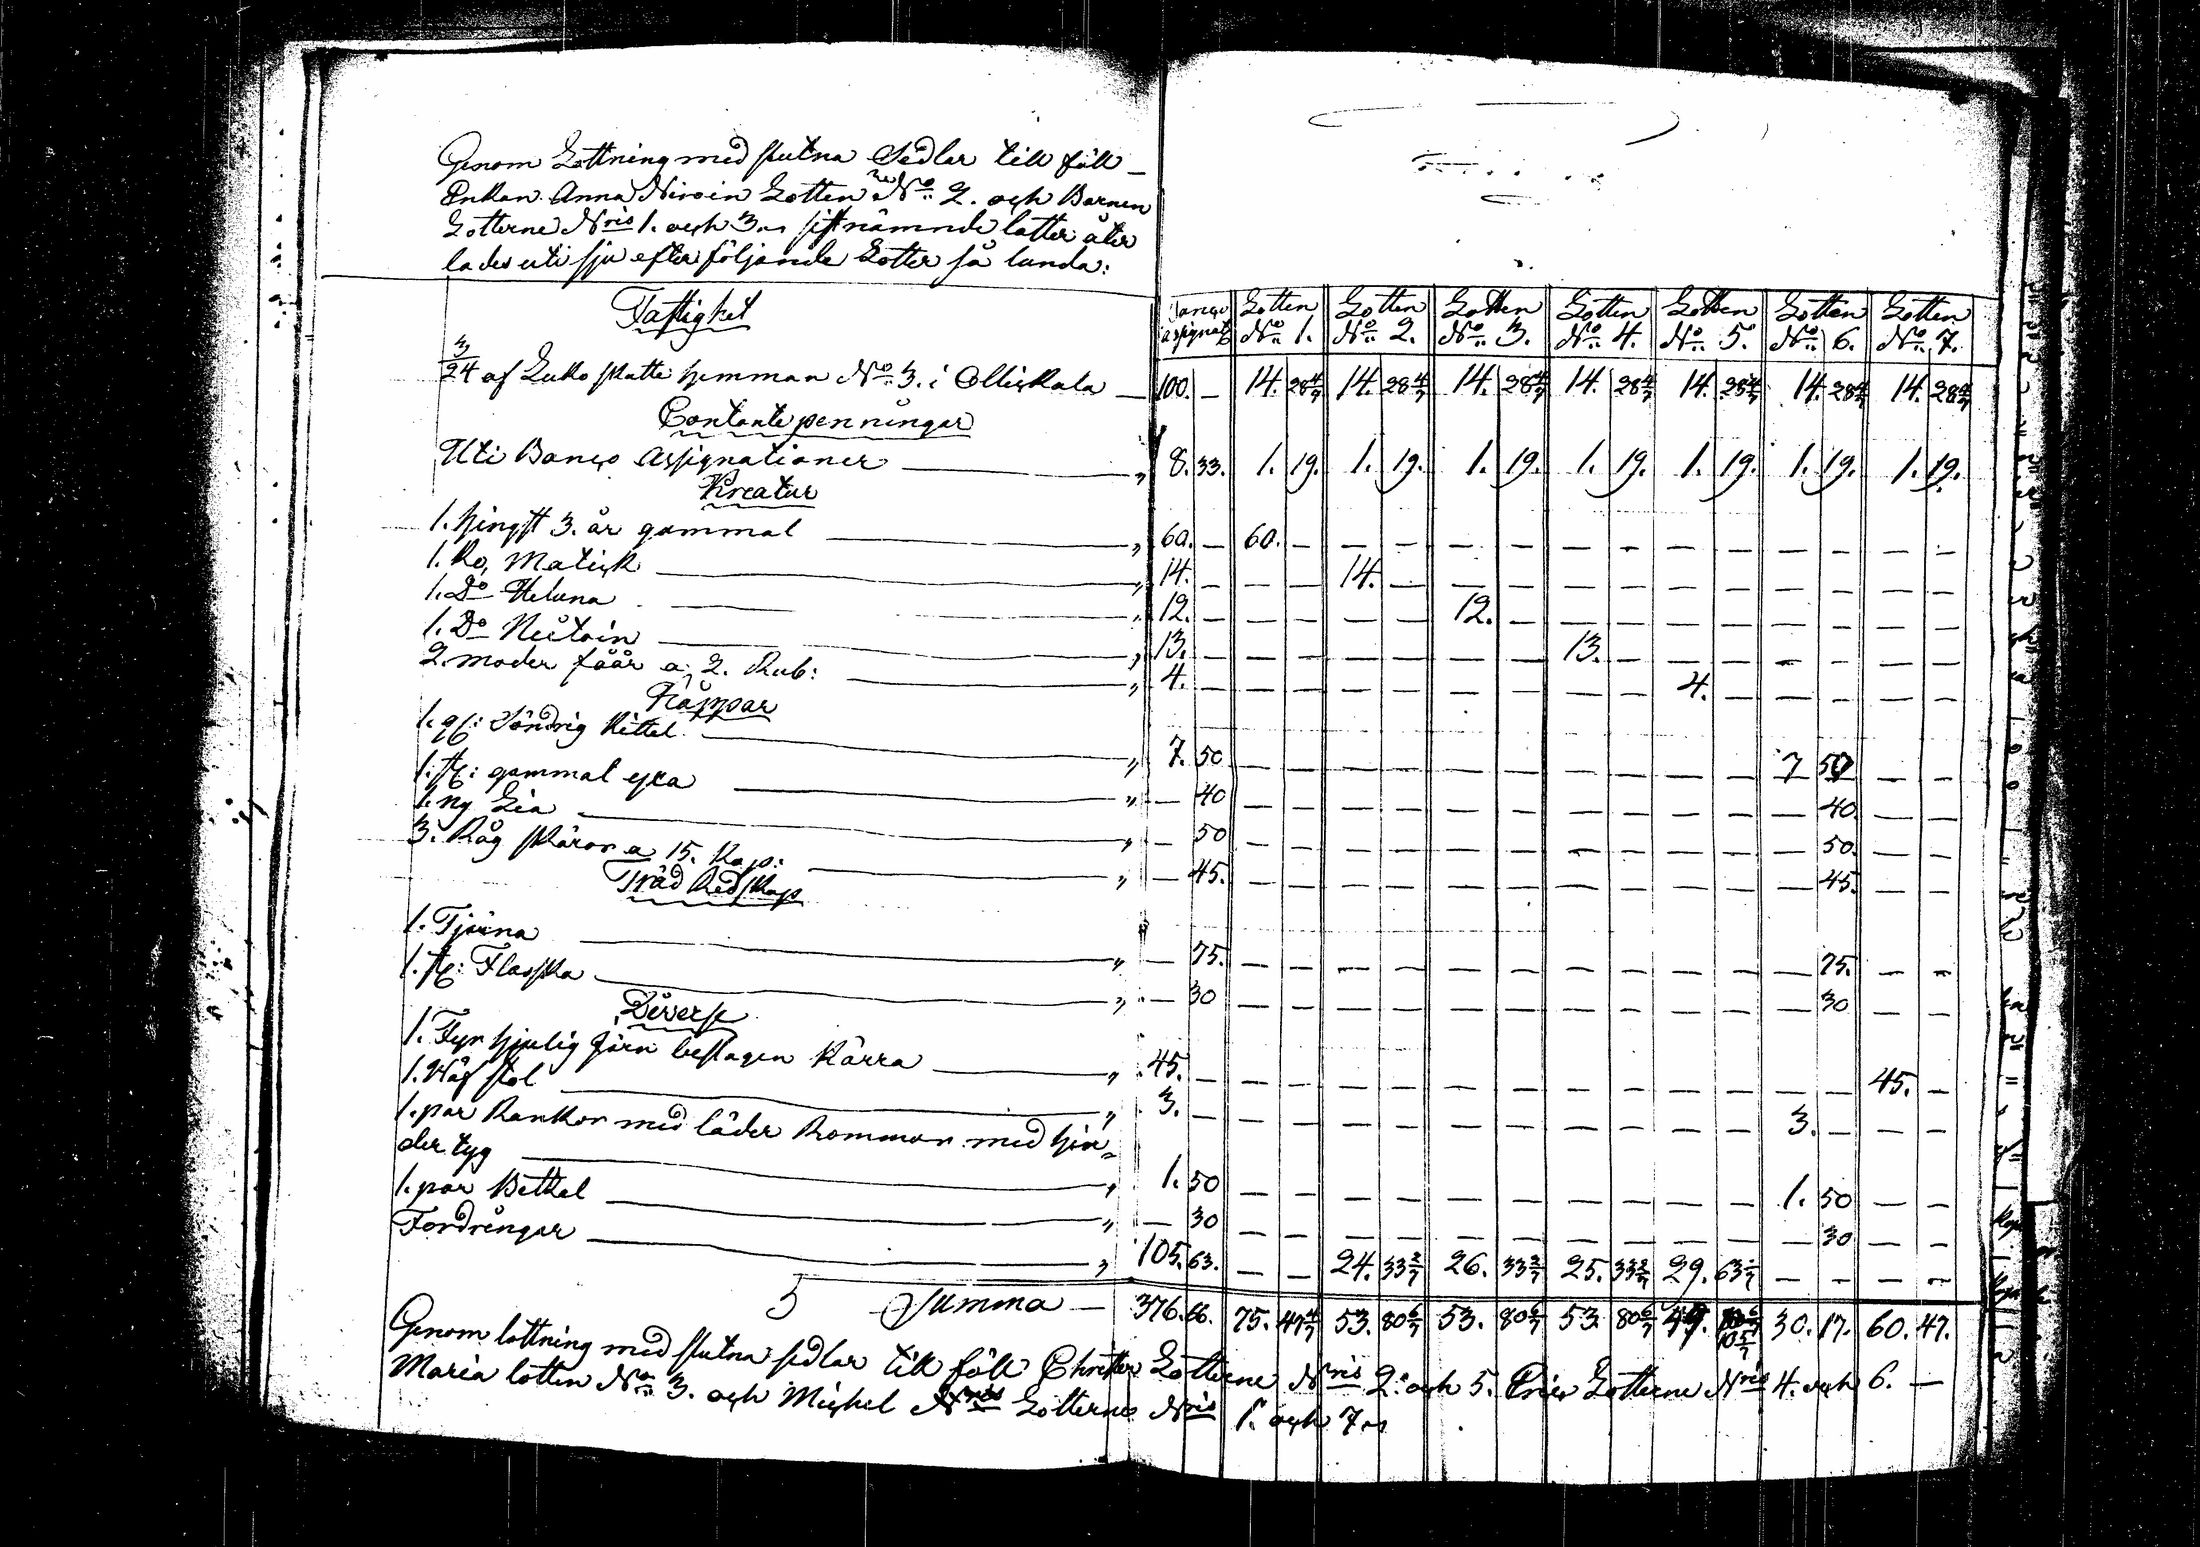 Genom Lottning med slutna Sedlar till föll
Enkan Anna Niroin Lotten N:o 2. och Barnen
Lotterne N:ris 1. och 3. sistnämnde lotter åter
lades uti sju efter följande Lotter så lunda:
Fastighet
Banco assignat: Lotten N:o 1. Lotten N:o 2. Lotten N:o 3. Lotten N:o 4. Lotten N:o 5. Lotten N:o 6. Lotten N:o 7.
3/24 af Luko skatte hemman N:o 3. i Olliskala — 100. — 14. 28 4/7 14. 28 4/7 14. 28 4/7 14. 28 4/7 14. 28 4/7 14. 28 4/7 14. 28 4/7
Contante penningar
Uti Banco Assignationer — " 8. 33. 1. 19. 1. 19. 1. 19. 1. 19. 1. 19. 1. 19. 1. 19.
Kreatur
1. hingst 3. år gammal — " 60. — 60. — — — — — — — — — — — — —
1. Ko, Matisk — " 14. — — — 14. — — — — — — — — — — —
1. D:o Heluna — " 12. — — — — — 12. — — — — — — — — —
1. D:o Neitoin — " 13. — — — — — — — 13. — — — — — — —
2. moder fåår a, 2. Rub: — " 4. — — — — — — — — — 4. — — — — —
Kåppar
1. gl: Söndrig Kittel — " 7. 50 — — — — — — — — — — 7 50 — —
1. st: gammal yxa — " — 40 — — — — — — — — — — — 40. — —
1. ny Lia — " — 50 — — — — — — — — — — — 50. — —
3. Råg skäror a 15. Kop: — " — 45. — — — — — — — — — — — 45. — —
Träd Redskap
1. Tjärna — " — 75. — — — — — — — — — — — 75. — —
1. st: Flasska — " — 30 — — — — — — — — — — — 30 — —
Diverse
1. Fyr hjulig järn beslagen Kärra — " 45. — — — — — — — — — — — — — 45. —
1. Wäf stol — " 3. — — — — — — — — — — — 3. — — —
1. par Rankor med läder Rommor med hin-
der tyg — " 1. 50 — — — — — — — — — — 1. 50 — —
1. par Bettel — " — 30 — — — — — — — — — — — 30 — —
Fordringar — " 105. 63. — — 24. 33 2/7 26. 33 2/7 25. 33 2/7 29. 63 1/7 — — — —
Summa — 376. 66. 75. 47 4/7 53. 80 6/7 53. 80 6/7 53. 80 6/7 49. 10 5/7 30. 17. 60. 47.
Genom lottning med slutna sedlar till föll Christer Lotterne N:ris 2. och 5. Eric Lotterne N:ris 4. och 6. —
Maria lotten N:o 3. och Michel N:ris Lotterne N:ris 1. och 7.